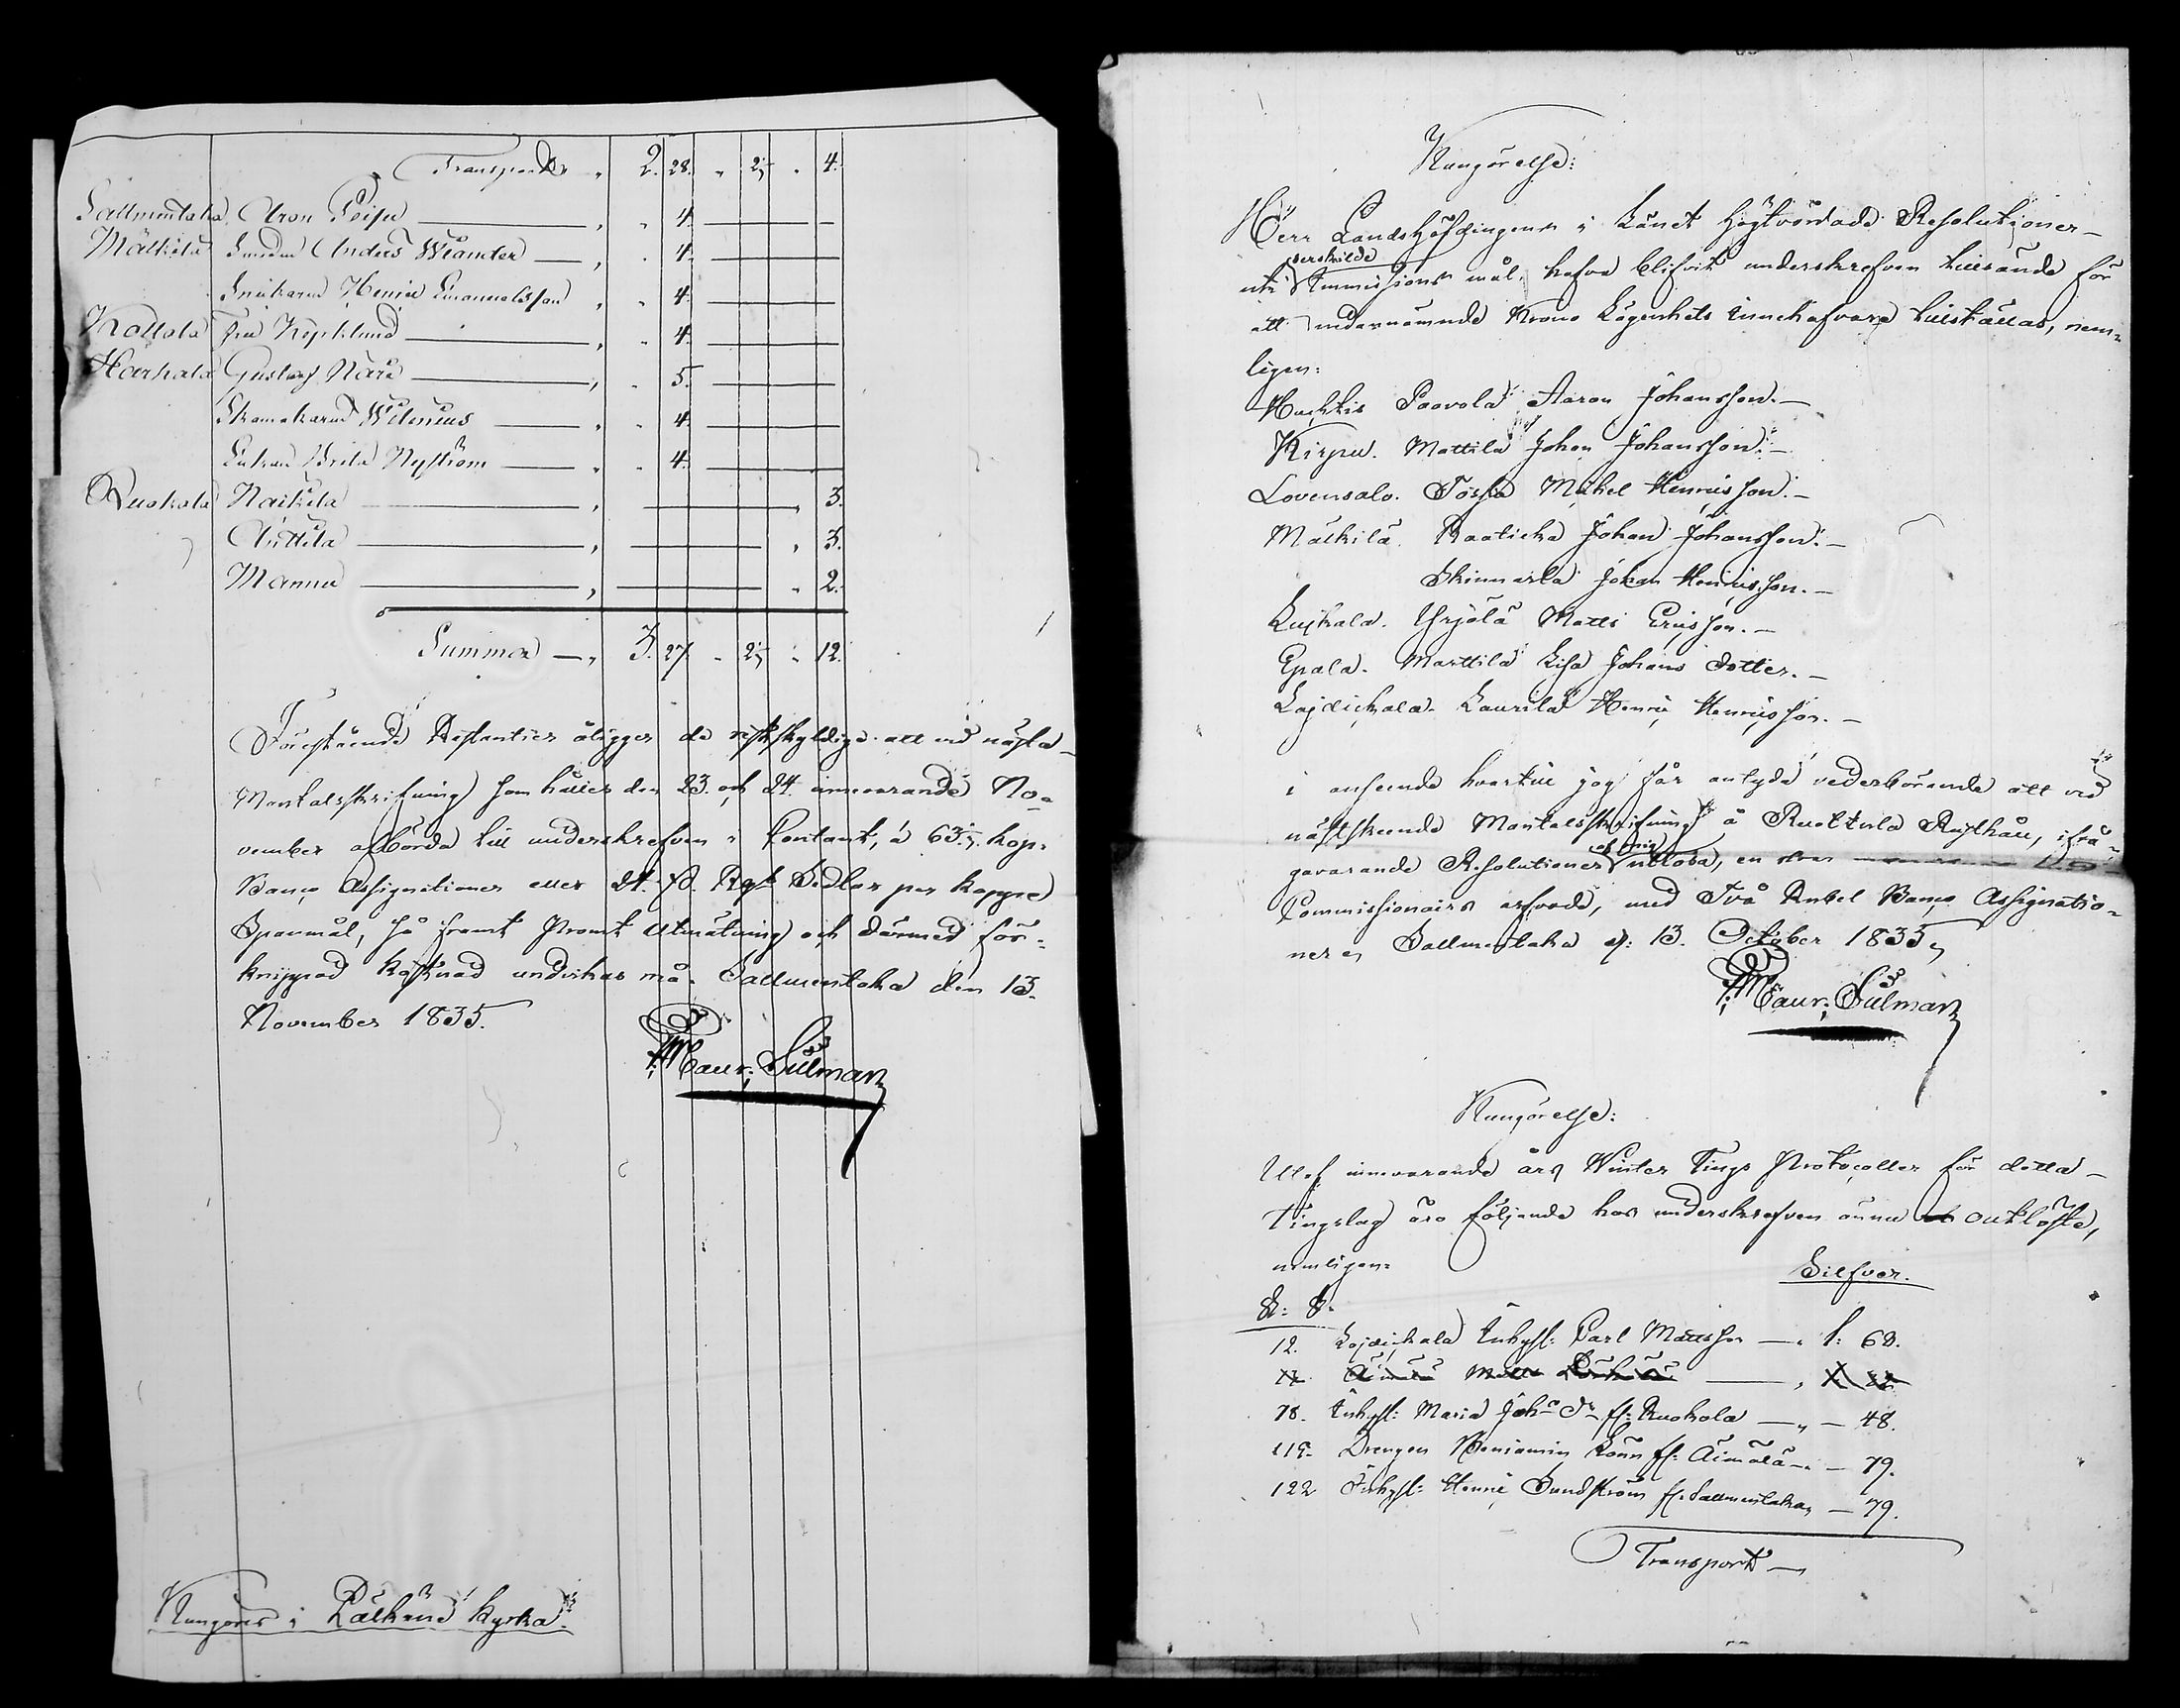 Transport " 2. 28. " 2/5 " 4.
Sallmentaka Aron Peipu " " 4.
Mälkilä Smeden Anders Wiander " " 4.
Snickaren Henric Emanuelsson " " 4.
Kollola Fru Kjeklund " " 4.
Harhala Gustaf Näre " " 5.
Skomakaren Wilenius " " 4.
Enkan Brita Nyström " " 4.
Ruokola Naikila " " 3.
Anttila " " 3.
Mannu " " 2.
Summa " 3. 27. " 2/5 " 12.
Förestående Restantier åligger de restskyldige att vid nästa
Mantalsskrifning som hålles den 23. och 24. innevarande No-
vember afbörda till underskrefven i Contant, à 63. kop.
Banco Assignationer eller Rgs Sedlar per kappe
Spanmål, så framt promt utmätning och därmed för-
knippad kostnad undvikas må. Sallmentaka den 13.
November 1835.
Maur: Silman
Kungöres i Pälkäne kyrka.
Kungörelse:
Herr Landshöfdingens i Länet högtvördade Resolutioner
serskilde
uti Immissions mål, hafva blifvit underskrefven tillsände för
att undernämnde Krono Lägenhets innehafvare tillställas, nem-
ligen:
Huchtis Paavola Aaron Johansson.
Kirpu. Mattila Johan Johansson.
Lovensalo. Jössa Mickel Henricsson.
Mälkilä. Raaticka Johan Johansson.
Skinnarla Johan Henricsson.
Luikala. Yrjölä Matts Ericsson.
Epaala. Marttila Lisa Johans dotter.
Laidickala. Laurila Henric Henricsson.
i anseende hvartill jag får antyda vederbörande att vid
nästskeende Mantalsskrifning å Ruottula Rusthåll, ifrå-
gavarande Resolutioner af mig utlösa,
Commissionairs arfvode, med Två Rubel Banco Assignatio-
ner. Sallmentaka d: 13. October 1835.
Maur: Silman
Kungörelse:
Utaf innevarande års Winter Tings Protocoller för detta
Tingslag äro följande hos underskrefven ännu outlöste,
nemligen:
Silfver.
§: §.
12. Laidickala Inhyss: Carl Mattsson " 1: 68.
78. Inhyss: Maria Johs Dr fr: Ruokola " 48.
119. Drengen Benjamin Lönn fr: Äimälä " 79.
122 Inhyss: Henric Sundström fr. Sallmentaka " 79.
Transport